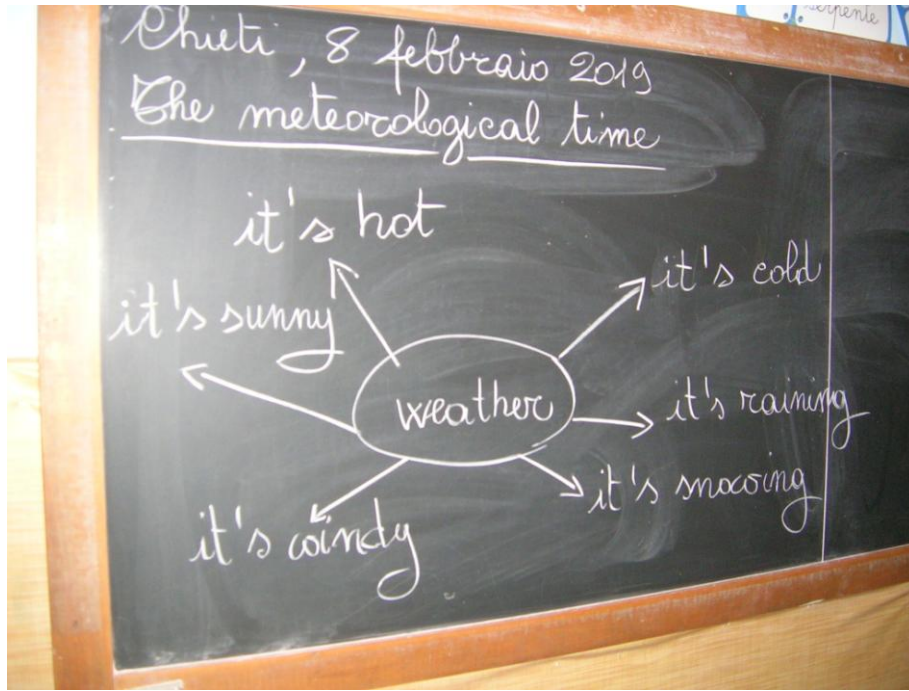 Serpente
Chieti, 8 febbraio 2019
The meteorological time
it's hot
it's cold
it's sunny
weather
it's raining
it's snowing
it's windy